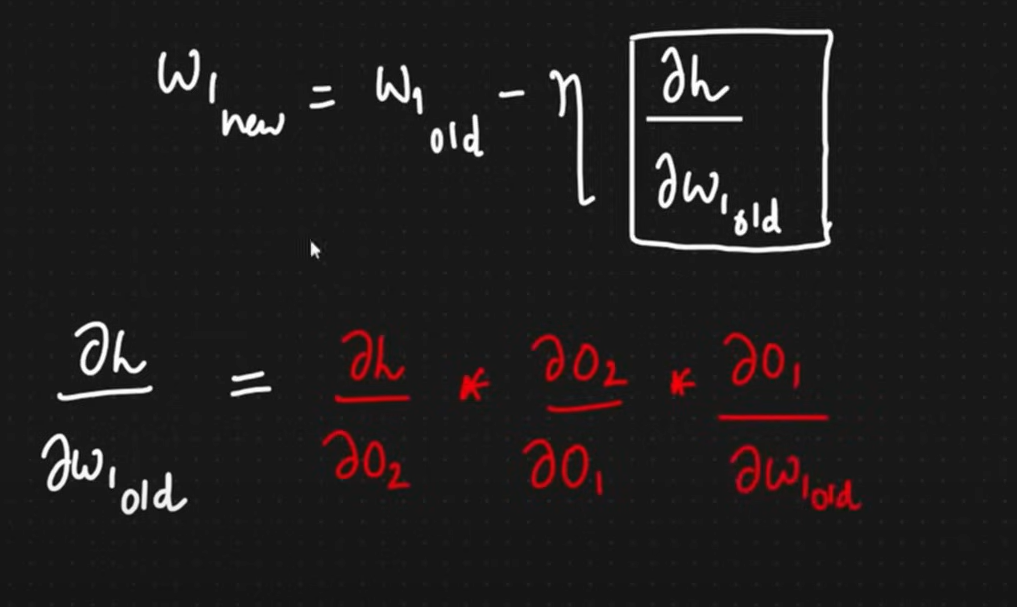 w₁ₙₑw = w₁ₒₗd - η ∂L/∂w₁ₒₗd
∂L/∂w₁ₒₗd = ∂L/∂O₂ * ∂O₂/∂O₁ * ∂O₁/∂w₁ₒₗd